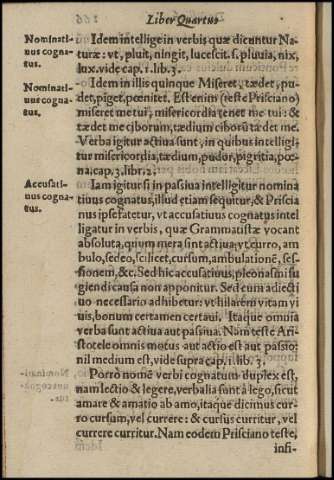 Liber Quartus
Nominati-
uus cogna-
tus.
Idem intellige in verbis quæ dicuntur Na-
turæ: vt, pluit, ningit, lucescit. s. pluuia, nix,
lux. vide cap. 1. lib. 3.
Nominati-
uus cogna-
tus.
Idem in illis quinque Miseret, tædet, pu-
det, piget, pœnitet. Est enim (teste Prisciano)
miseret me tui, misericordia tenet me tui: &
tædet me ciborum, tædium ciborũ tædet me.
Verba igitur actiua sunt, in quibus intelligi-
tur misericordia, tædium, pudor, pigritia, pœ-
na. cap. 3. libr. 2.
Accusati-
uus cogna-
tus.
Iam igitur si in passiua intelligitur nomina
tiuus cognatus, illud etiam sequitur, & Priscia
nus ipse fatetur, vt accusatiuus cognatus intel
ligatur in verbis, quæ Grammatistæ vocant
absoluta, quum mera sint actiua, vt curro, am
bulo, sedeo, scilicet, cursum, ambulationẽ, ses-
sionem, &c. Sed hic accusatiuus, pleonasmi fu
giendi causa non apponitur. Sed cum adiecti
uo necessario adhibetur: vt hilarem vitam vi
uis, bonum certamen certaui. Itaque omnia
verba sunt actiua aut passiua. Nam teste Ari-
stotele omnis motus aut actio est aut passio:
nil medium est, vide supra cap. 1. lib. 3.
Porrò nomẽ verbi cognatum duplex est,
nam lectio & legere, verbalia sunt à lego, sicut
amare & amatio ab amo, itaque dicimus cur-
ro cursum, vel currere: & cursus curritur, vel
currere curritur. Nam eodem Prisciano teste,
infi-